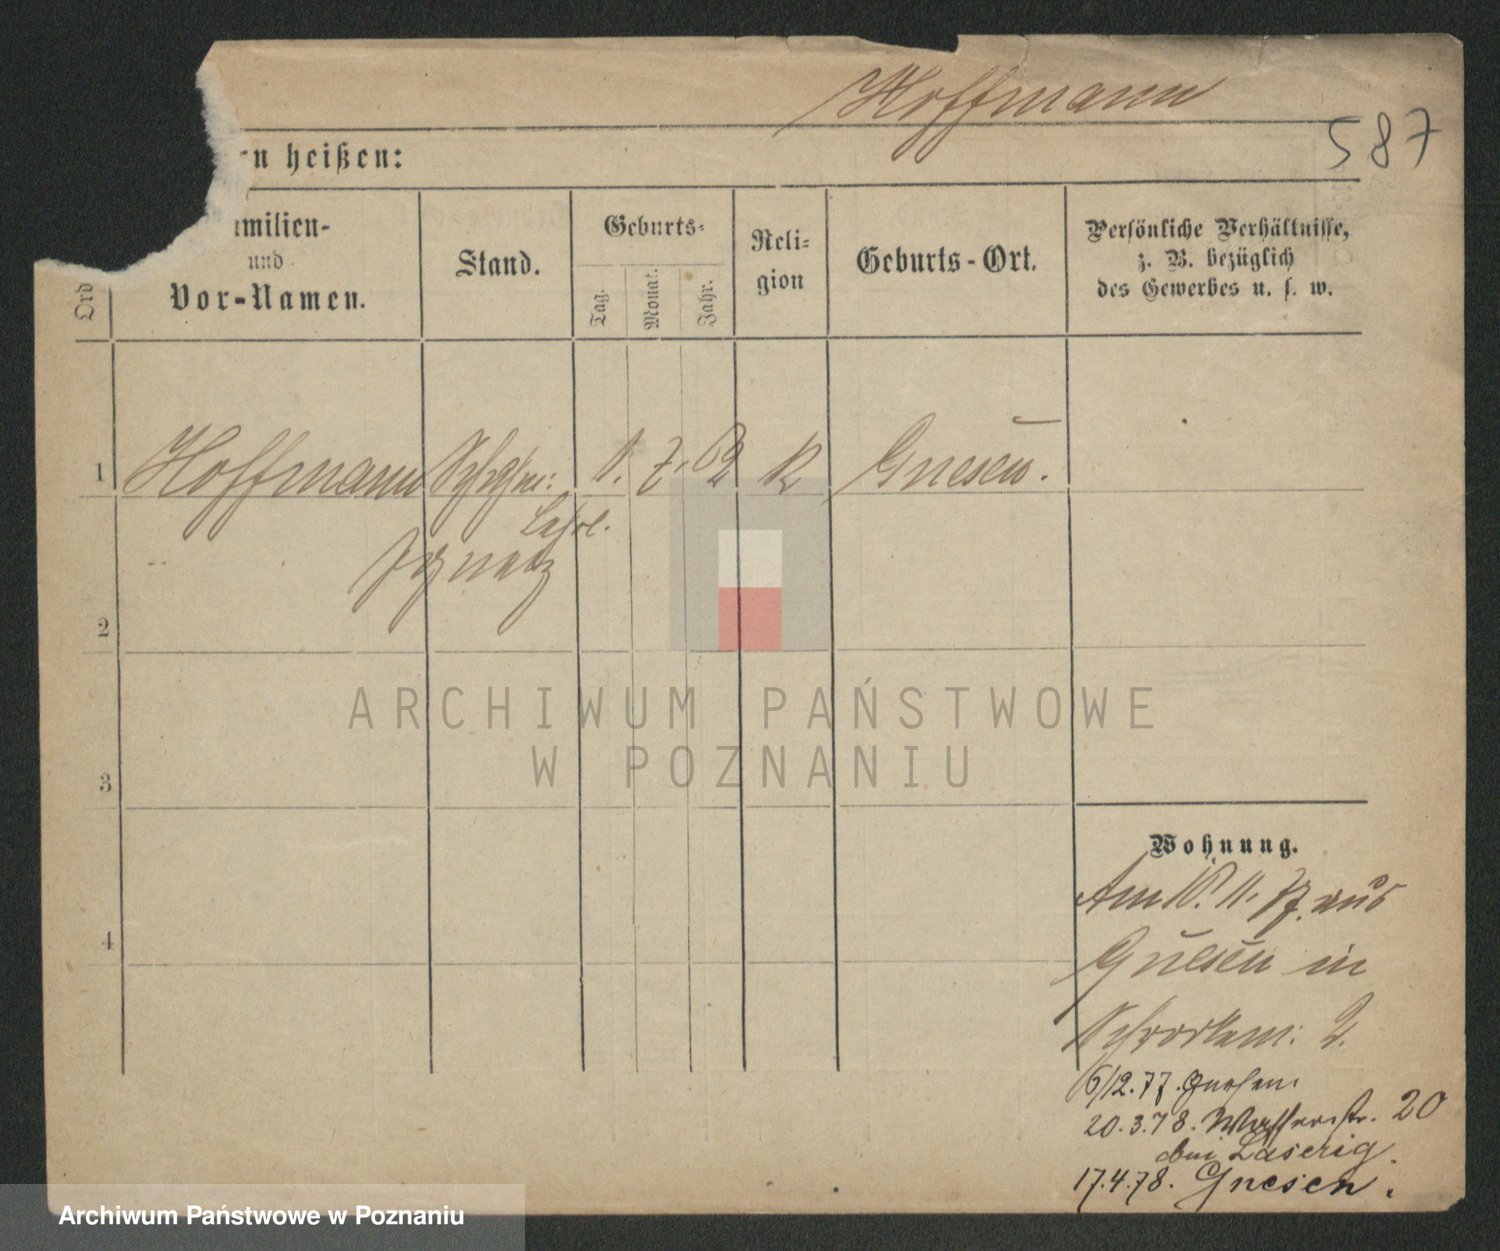 Hoffmann
587
n heißen:
Ord
amilien-
und
Vor-Namen.
Stand.
Geburts-
Tag.
Monat.
Jahr.
Reli-
gion
Geburts-Ort.
Persönliche Verhältnisse,
z. B. bezüglich
des Gewerbes u. s. w.
1 Hoffmann Gnesen.
Ignatz
2
3
4
ARCHIWUM PAŃSTWOWE
W POZNANIU
Wohnung.
Am 77 aus
Gnesen in
2.
6/12.77. Gnesen
20.3.78. Wasserstr. 20
bei Laserig.
17.4.78. Gnesen.
Archiwum Państwowe w Poznaniu